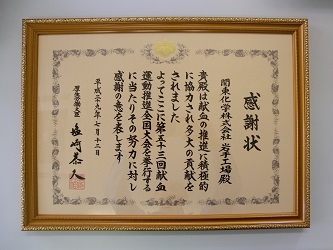 感謝状
関東化学株式会社 岩手工場殿
貴殿は献血の推進に積極的
に協力され多大の貢献を
されました
よってここに第五十三回献血
運動推進全国大会を挙行する
に当たりその努力に対し
感謝の意を表します
平成二十九年七月十二日
厚生労働大臣 塩崎恭久